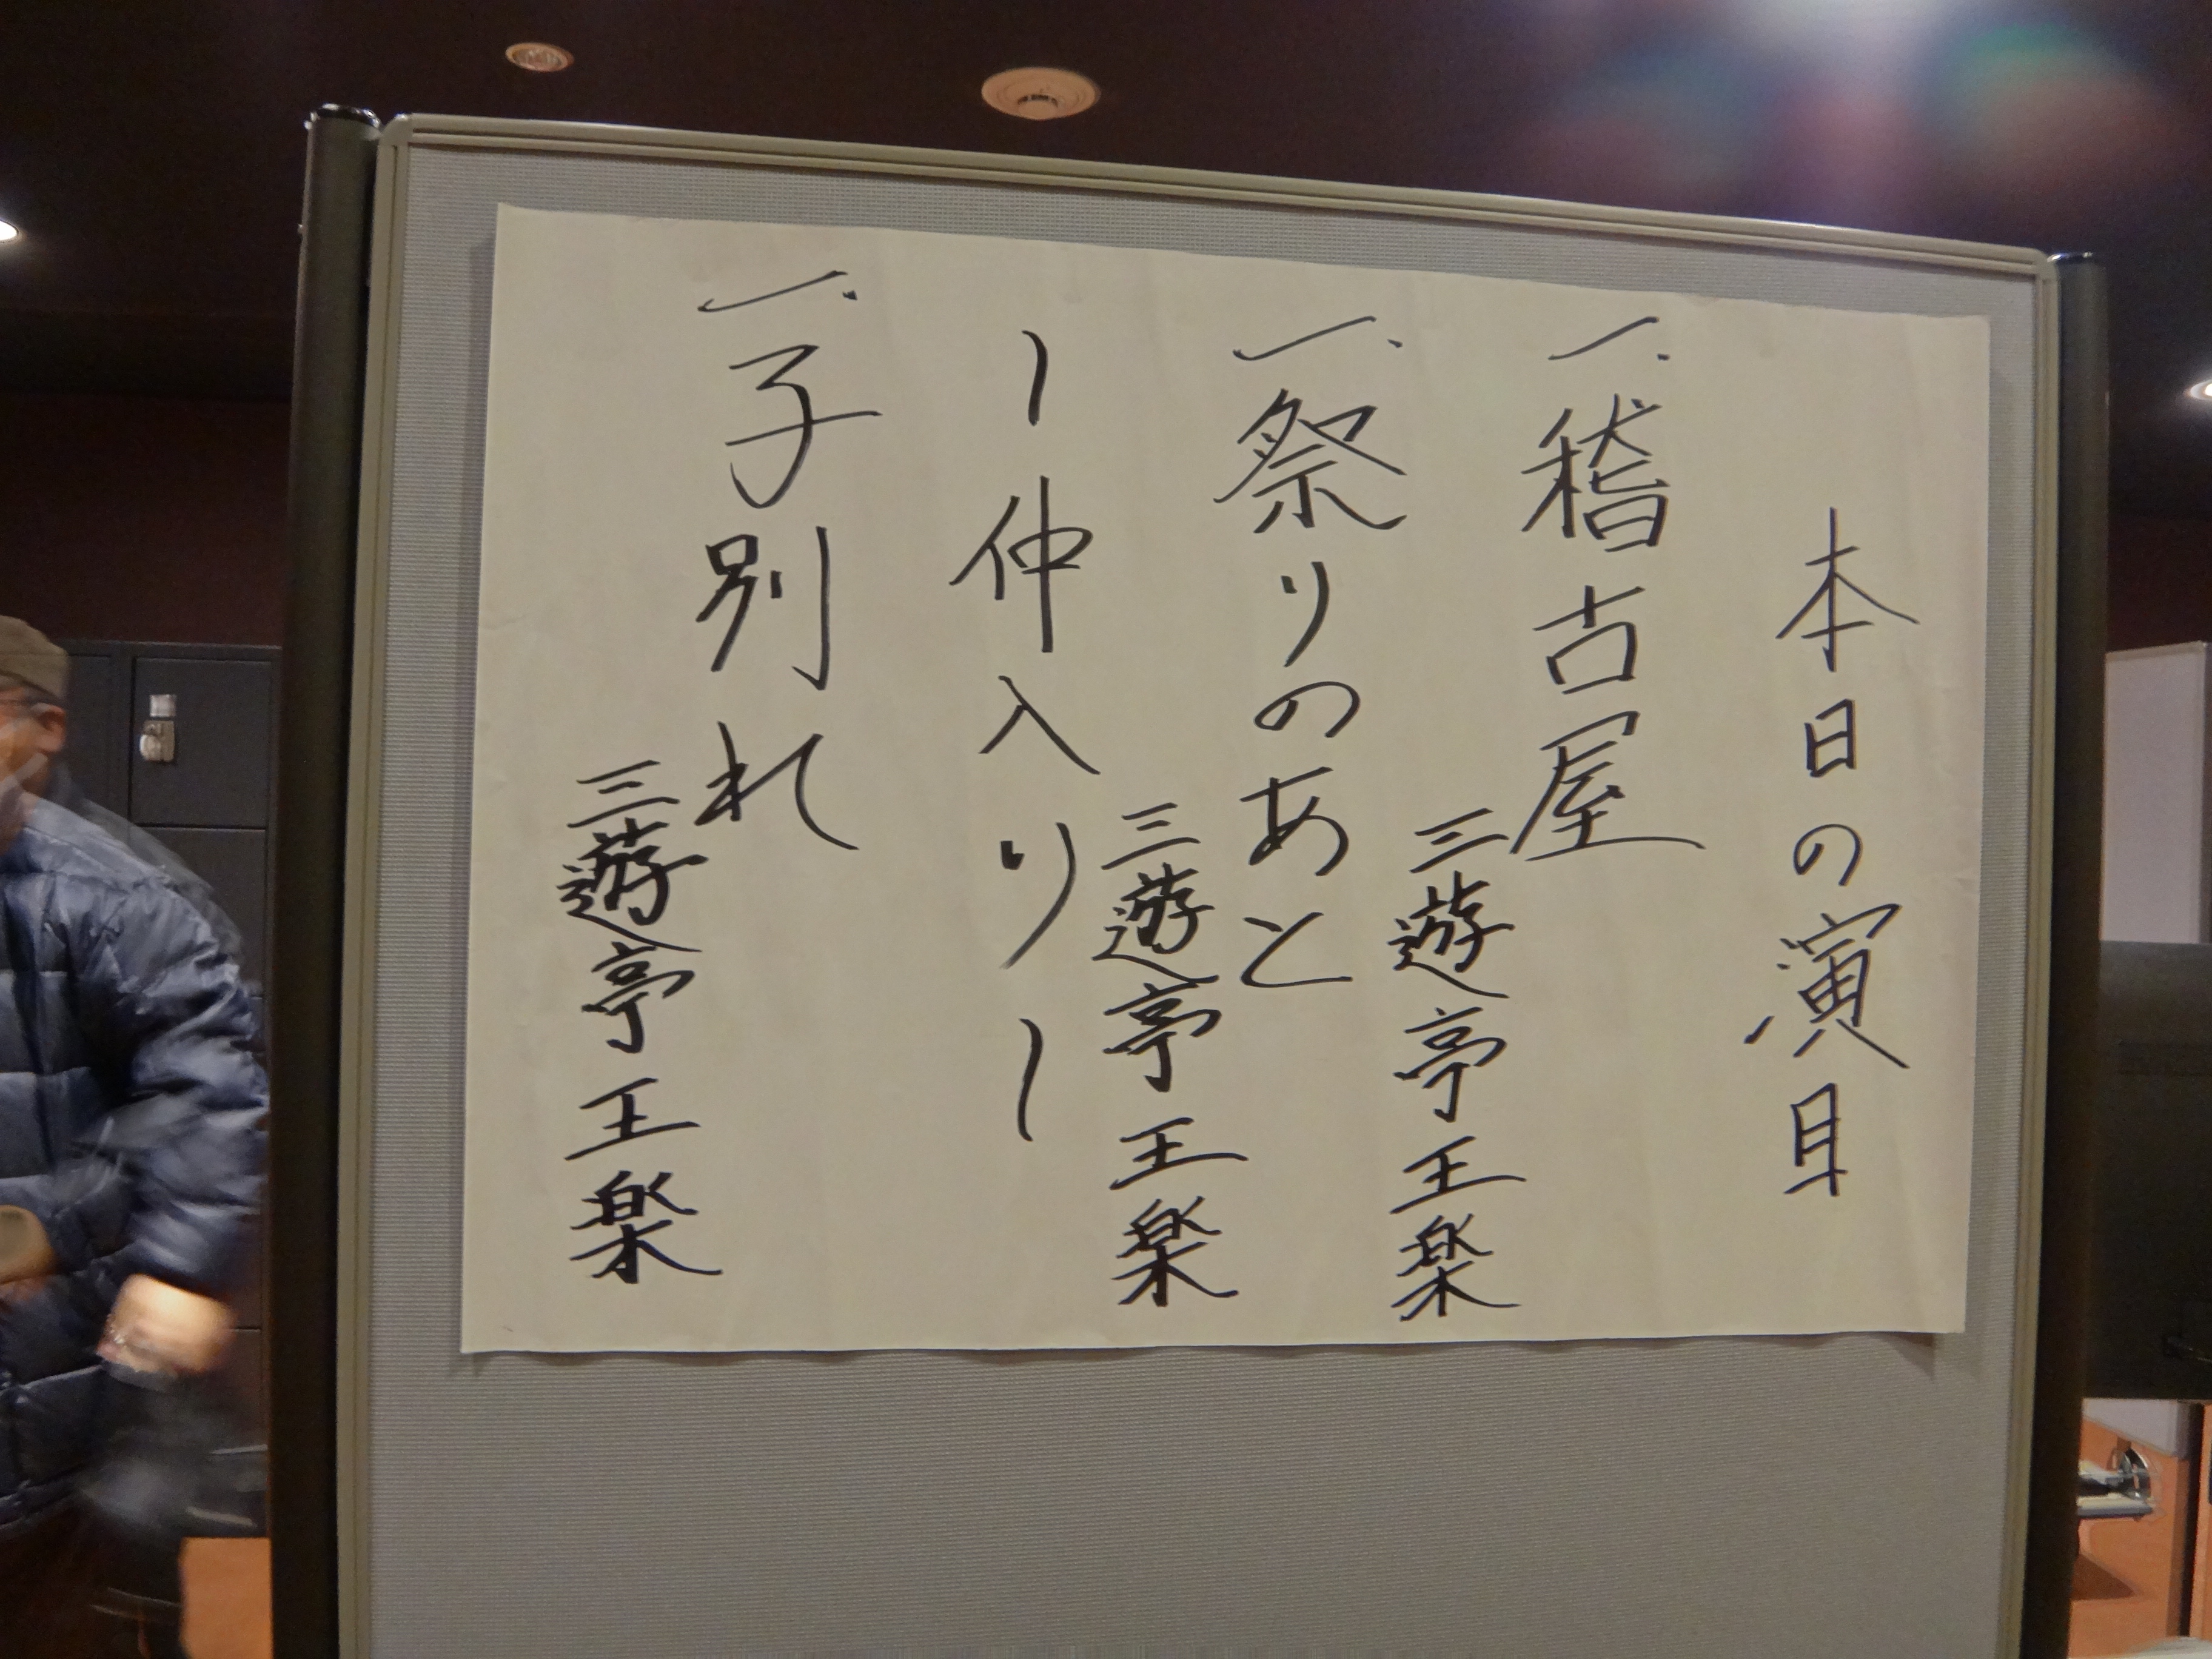 本日の演目
一、稽古屋
三遊亭王楽
一、祭りのあと
三遊亭王楽
ー仲入りー
一、子別れ
三遊亭王楽